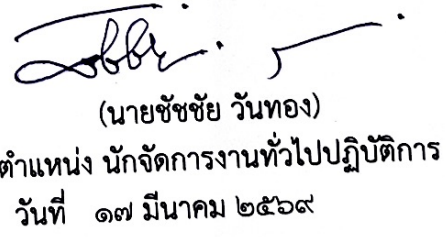 (นายชัชชัย วันทอง)
ตำแหน่ง นักจัดการงานทั่วไปปฏิบัติการ
วันที่ ๑๗ มีนาคม ๒๕๖๙